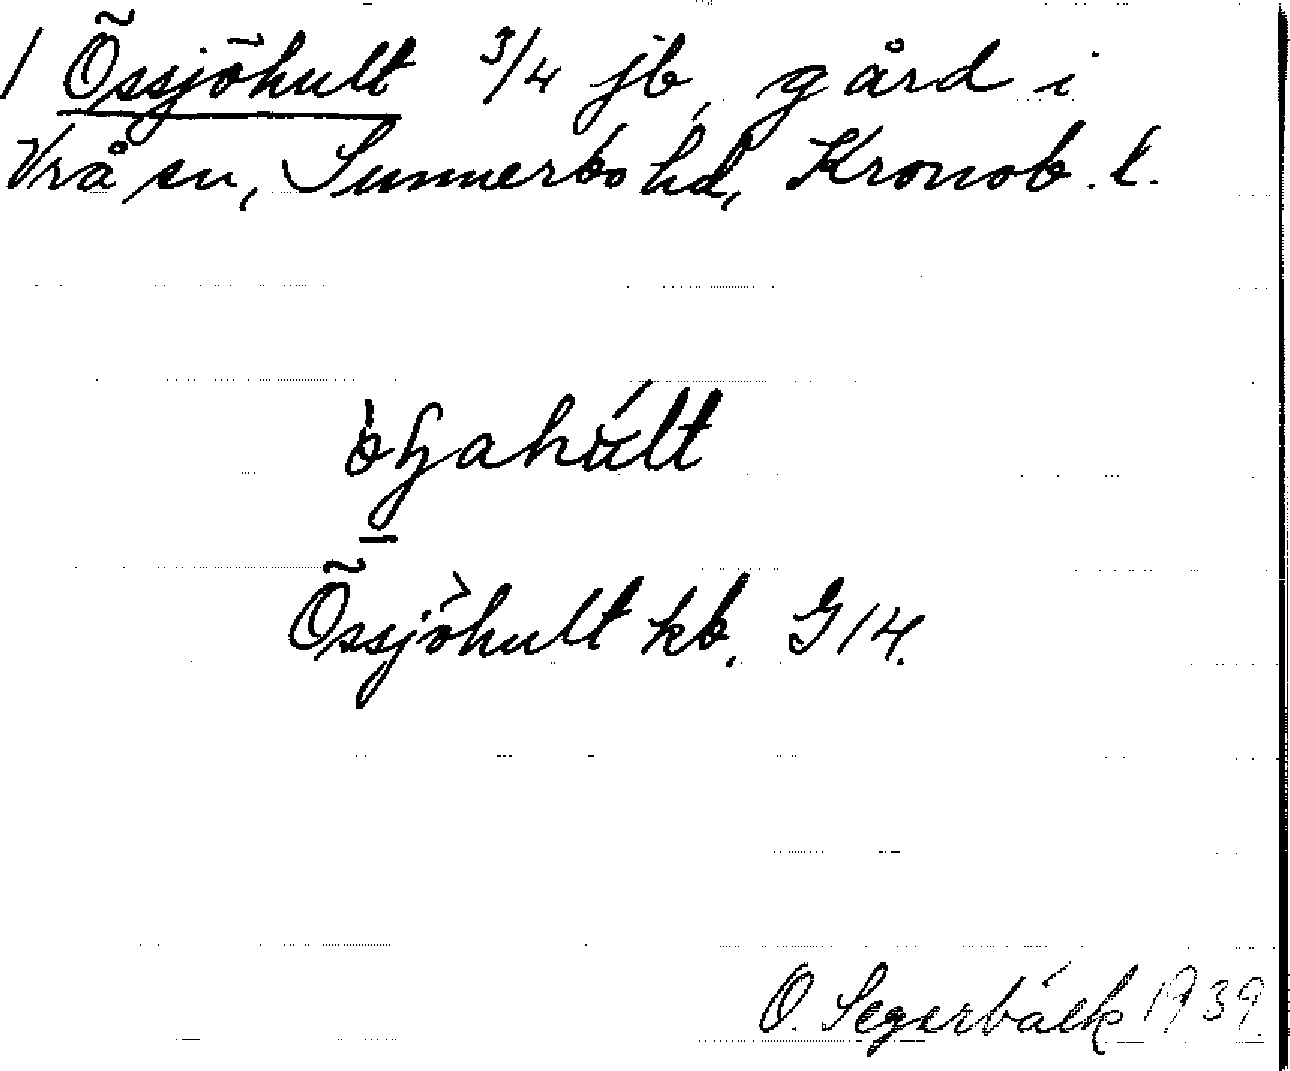 1 Össjöhult 3/4 jb, gård i
Vrå sn, Sunnerbo hd, Kronob. l.
Össjöhult kb. G14.
O. Segerbäck 1939.